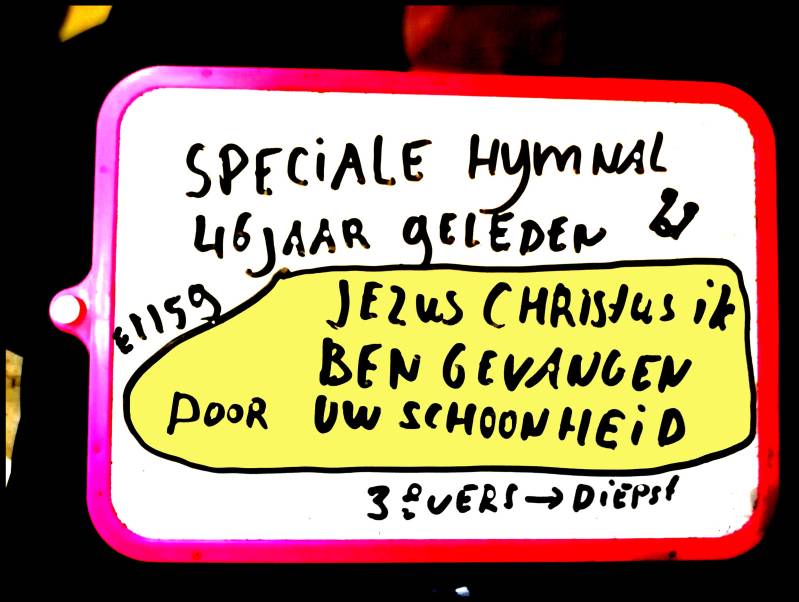 SPECIALE HYMNAL
46 JAAR GELEDEN
E1159
JEZUS CHRISTUS ik
BEN GEVANGEN
DOOR UW SCHOONHEID
3e VERS → DIEPST